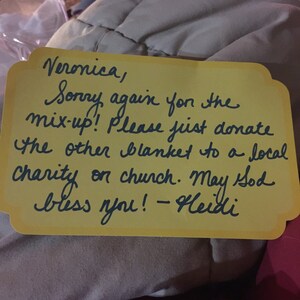 Veronica,
Sorry again for the
mix-up! Please just donate
the other blanket to a local
charity or church. May God
bless you! — Heidi